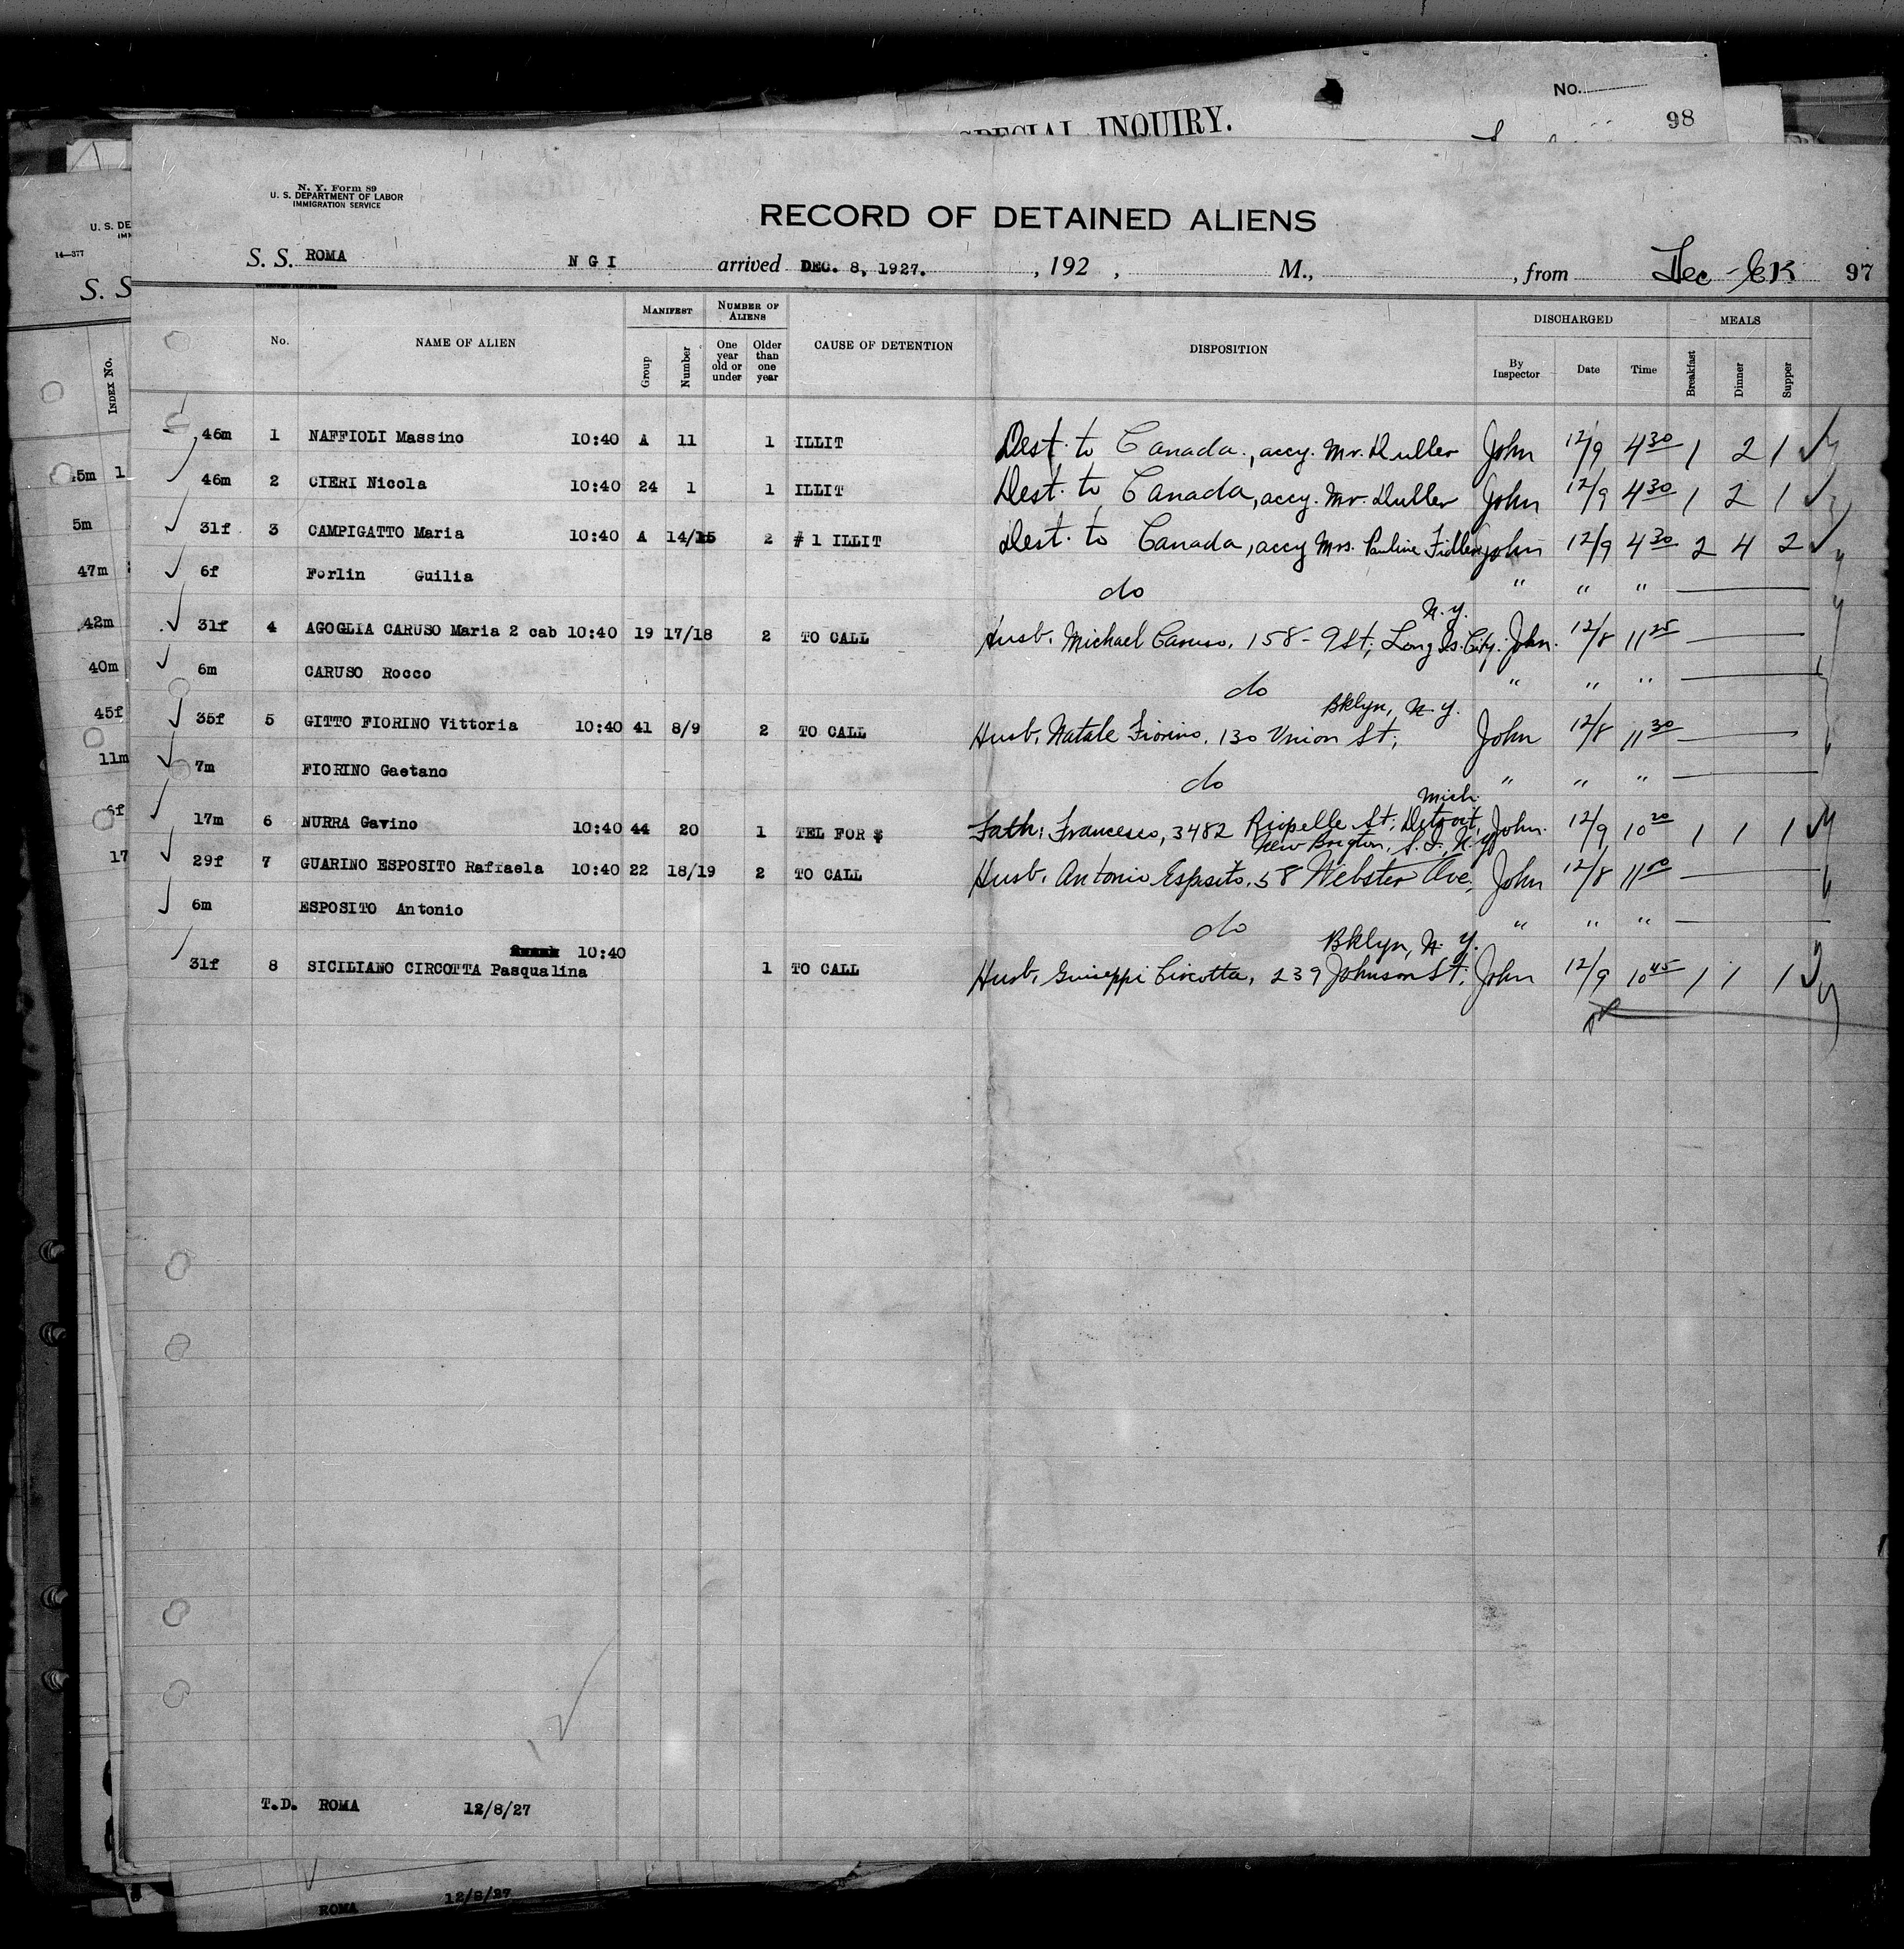 No.
98
SPECIAL INQUIRY.
N. Y. Form 89
U. S. DEPARTMENT OF LABOR
IMMIGRATION SERVICE
RECORD OF DETAINED ALIENS
U. S. DE
14—377
S. S
S. S. ROMA N G I arrived DEC. 8, 1927. , 192 , M., , from 97
INDEX No.
No. NAME OF ALIEN MANIFEST Group Number NUMBER OF ALIENS One year old or under Older than one year CAUSE OF DETENTION DISPOSITION DISCHARGED By Inspector Date Time MEALS Breakfast Dinner Supper
46m 1 NAFFIOLI Massino 10:40 A 11 1 ILLIT Dest. to Canada, accy. Mr. Duller John 12/9 4 30 1 2 1
5m 1
46m 2 CIERI Nicola 10:40 24 1 1 ILLIT Dest. to Canada, accy. Mr. Duller John 12/9 4 30 1 2 1
5m
31f 3 CAMPIGATTO Maria 10:40 A 14/15 2 # 1 ILLIT Dest. to Canada, accy Mrs. Pauline Fidler John 12/9 4 30 2 4 2
47m
6f Forlin Guilia do " " "
42m
N.Y.
31f 4 AGOGLIA CARUSO Maria 2 cab 10:40 19 17/18 2 TO CALL Husb. Michael Caruso, 158-9 St; Long Is. City. John. 12/8 11 25
40m
6m CARUSO Rocco do " " "
45f
Bklyn, N.Y.
35f 5 GITTO FIORINO Vittoria 10:40 41 8/9 2 TO CALL Husb, Natale Fiorino, 130 Union St; John 12/8 11 30
11m
7m FIORINO Gaetano do " " "
6f
Mich.
17m 6 NURRA Gavino 10:40 44 20 1 TEL FOR $ Fath: Francesco, 3482 Riopelle St; Detroit, John. 12/9 10 20 1 1 1
17
New Brigton, S.I., N.Y.
29f 7 GUARINO ESPOSITO Raffaela 10:40 22 18/19 2 TO CALL Husb. Antonio Esposito, 58 Webster Ave, John 12/8 11
6m ESPOSITO Antonio do " " "
Bklyn, N.Y.
10:40
31f 8 SICILIANO CIRCOTTA Pasqualina 1 TO CALL Husb, Guiseppi Circotta, 239 Johnson St; John 12/9 10 45 1 1 1
T.D. ROMA 12/8/27
ROMA 12/8/27